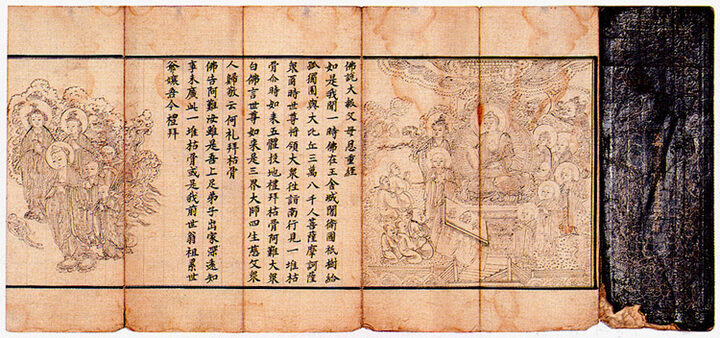 佛說大報父母恩重經
如是我聞一時佛在王舍城闍衛國祇樹給
孤獨園與大比丘三萬八千人菩薩摩訶薩
衆爾時世尊將領大衆往詣南行見一堆枯
骨尒時如來五體投地禮拜枯骨阿難大衆
白佛言世尊如來是三界大師四生慈父衆
人歸敬云何礼拜枯骨
佛告阿難汝雖是吾上足弟子出家深遠知
事未廣此一堆枯骨或是我前世翁祖累世
爺孃吾今禮拜